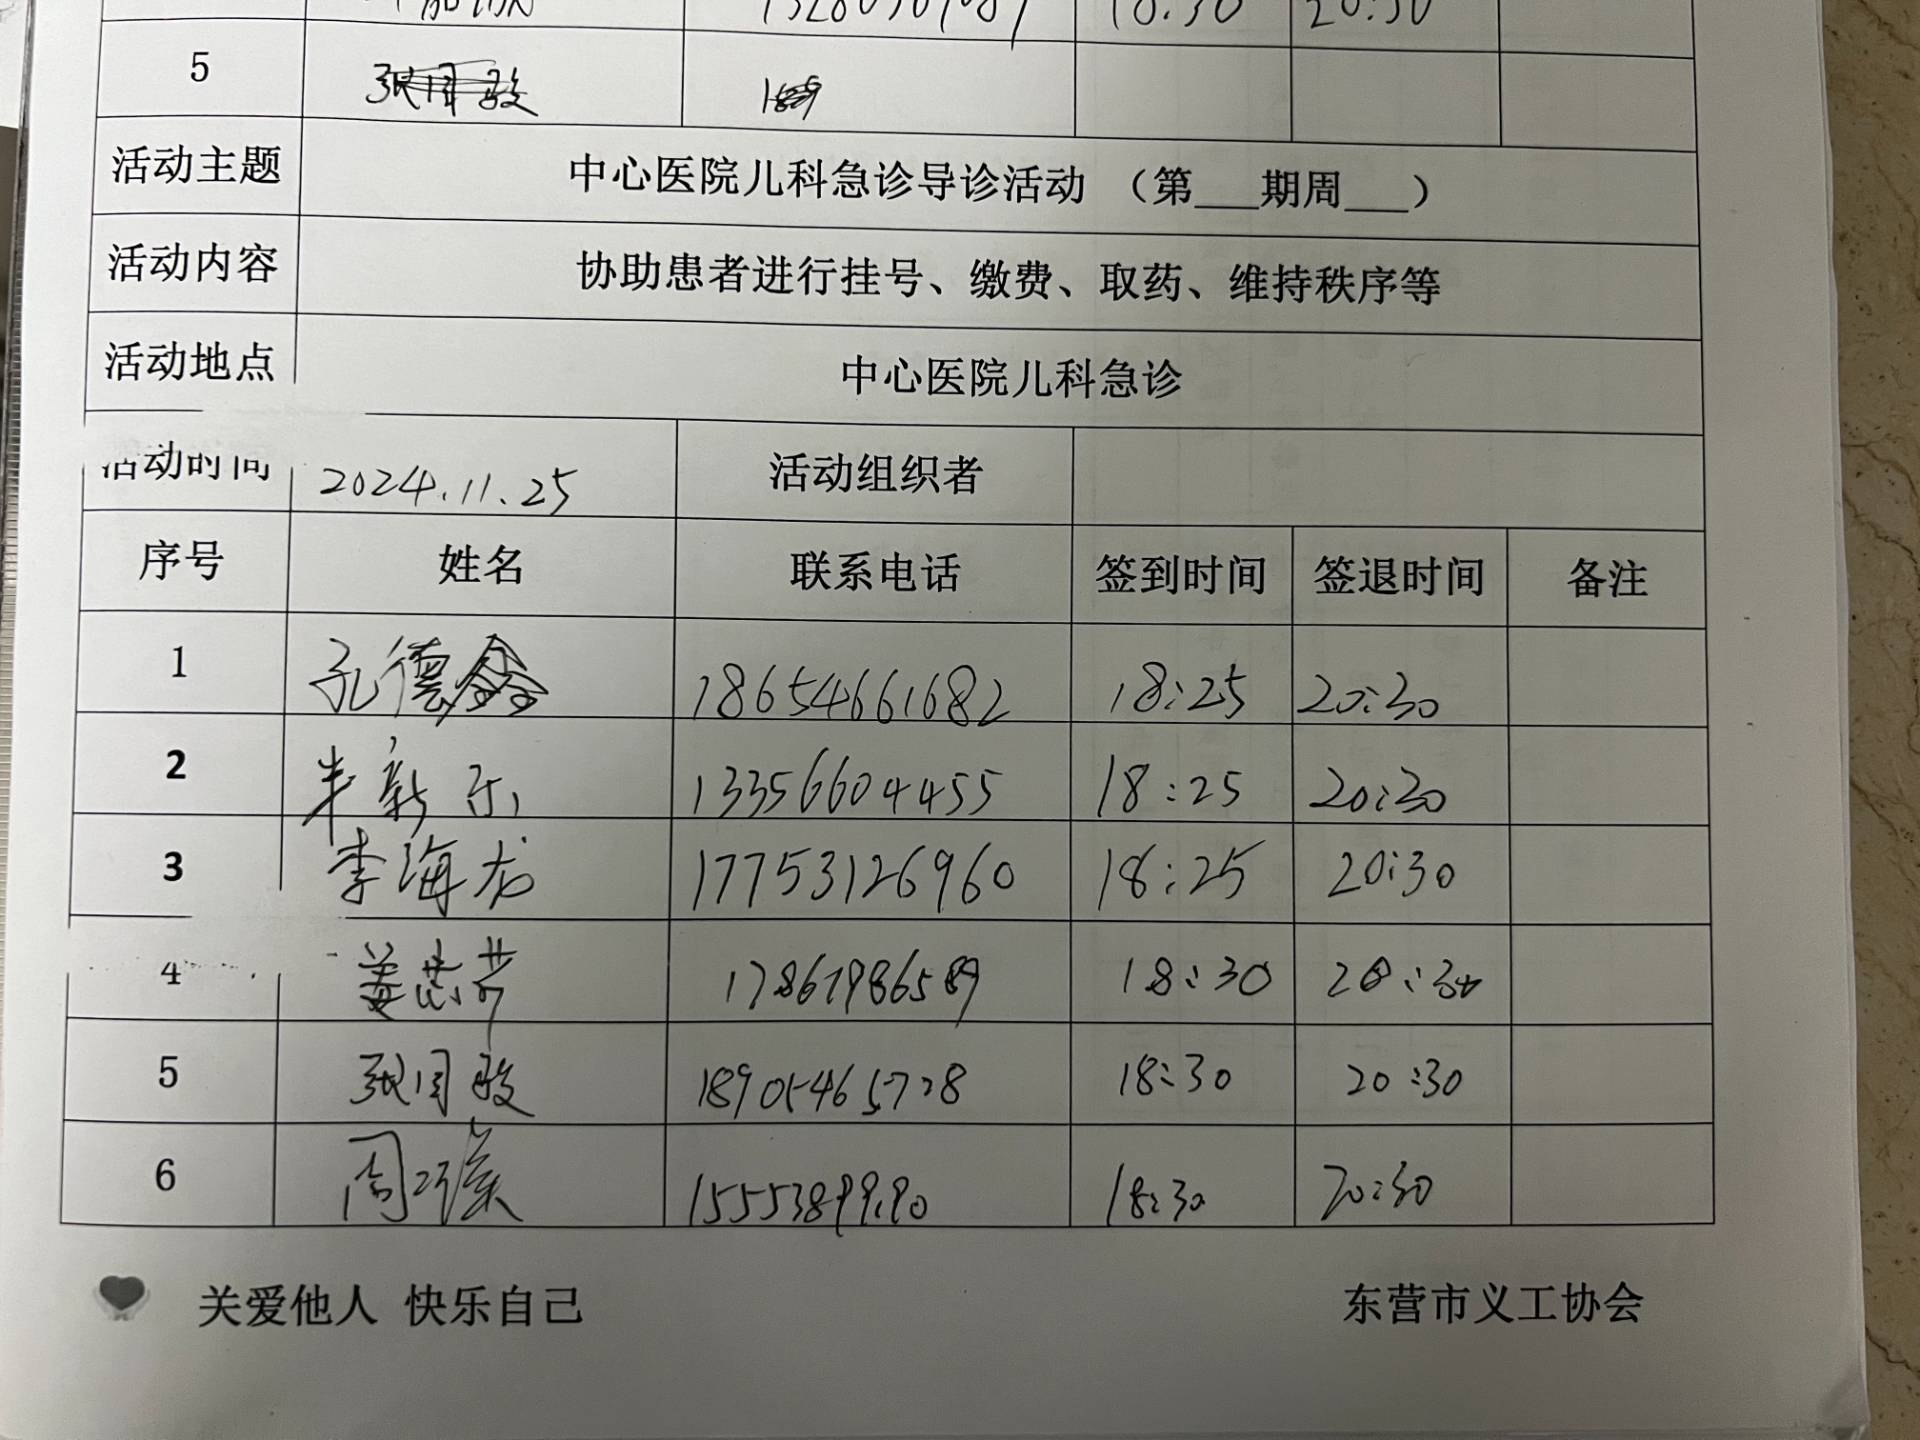 18:30 20:30
5
活动主题 中心医院儿科急诊导诊活动 （第___期周___）
活动内容 协助患者进行挂号、缴费、取药、维持秩序等
活动地点 中心医院儿科急诊
活动时间 2024.11.25 活动组织者
序号 姓名 联系电话 签到时间 签退时间 备注
1 孔德鑫 18654661682 18:25 20:30
2 13356604455 18:25 20:30
3 李海龙 17753126960 18:25 20:30
4 18:30 20:30
5 18905465728 18:30 20:30
6 18:30 20:30
关爱他人 快乐自己 东营市义工协会